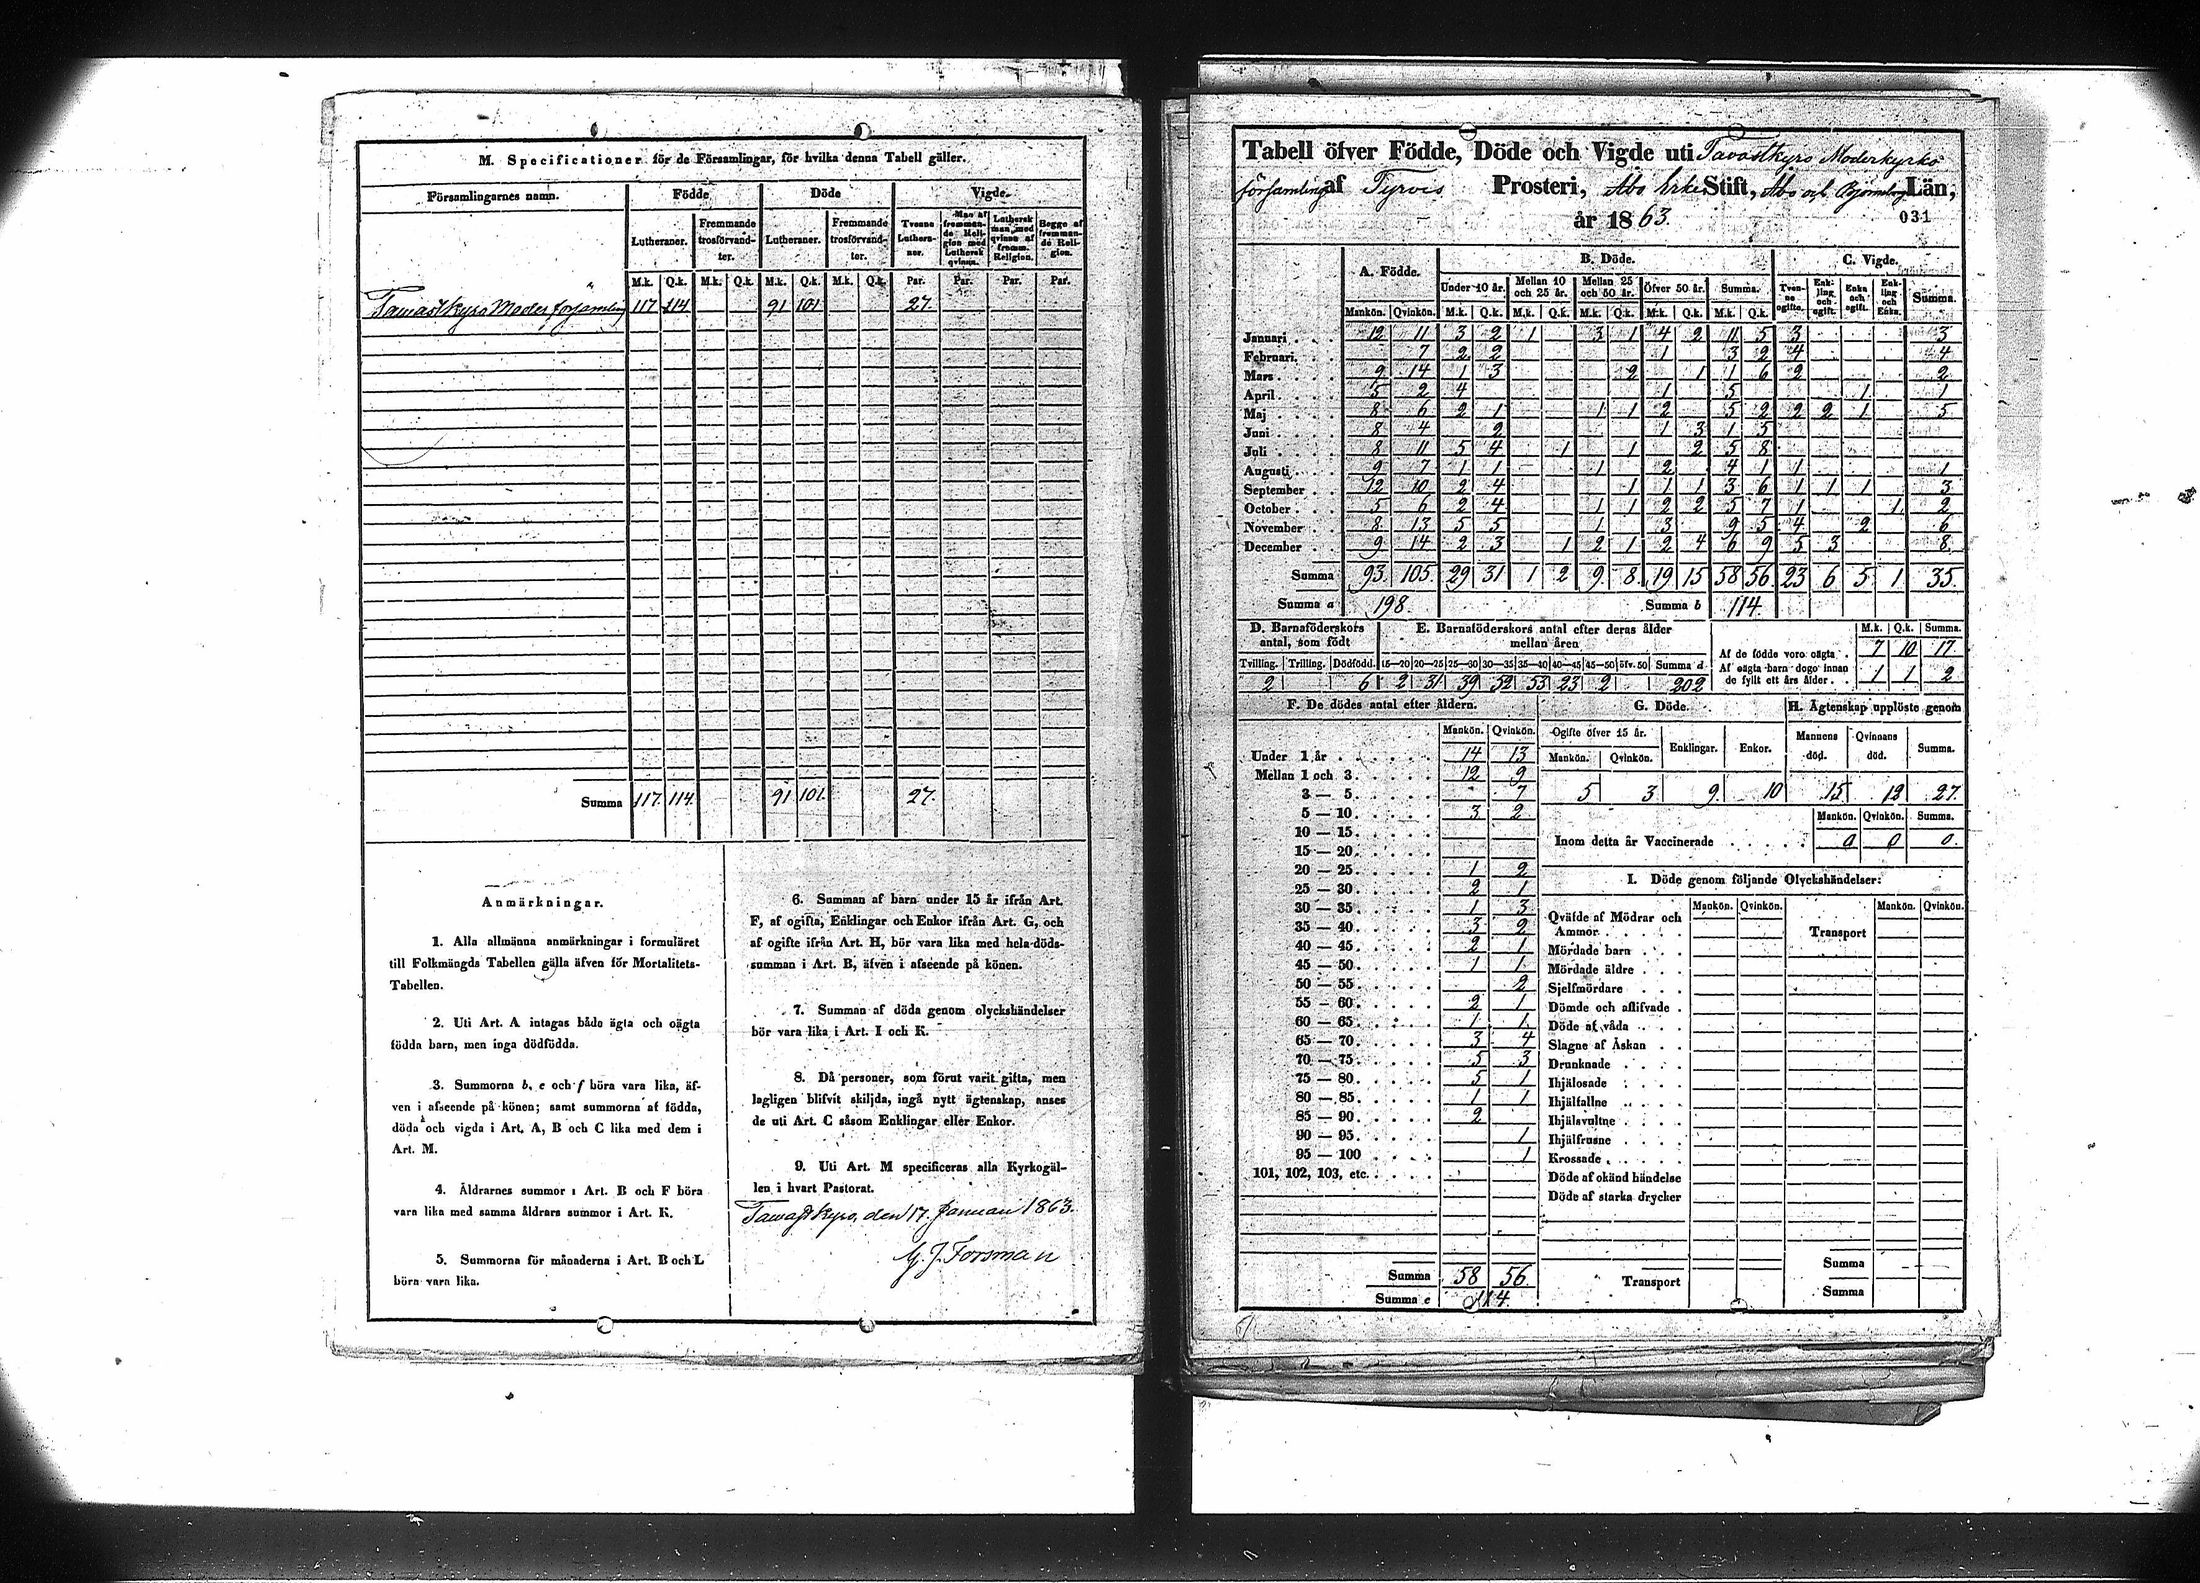 M. Specificationer för de Församlingar, för hvilka denna Tabell gäller.
Församlingarnes namn. Födde Döde Vigde.
Lutheraner. Fremmande trosförvandter. Lutheraner. Fremmande trosförvandter. Tvenne Lutheraner. Man af fremmande Religion med Luthersk qvinna. Luthersk man med qvinna af fremm. Religion. Begge af fremmande Religion.
M.k. Q.k. M.k. Q.k. M.k. Q.k. M.k. Q.k. Par. Par. Par. Par.
Tawastkyro Moder församling 117 114 91 101 27.
Summa 117. 114. 91 101. 27.
Anmärkningar.
1. Alla allmänna anmärkningar i formuläret
till Folkmängds Tabellen gälla äfven för Mortalitets-
Tabellen.
2. Uti Art. A intagas både ägta och oägta
födda barn, men inga dödfödda.
3. Summorna b, e och f böra vara lika, äf-
ven i afseende på könen; samt summorna af födda,
döda och vigda i Art. A, B och C lika med dem i
Art. M.
4. Åldrarnes summor i Art. B och F böra
vara lika med samma åldrars summor i Art. K.
5. Summorna för månaderna i Art. B och L
böra vara lika.
6. Summan af barn under 15 år ifrån Art.
F, af ogifta, Enklingar och Enkor ifrån Art. G, och
af ogifte ifrån Art. H, bör vara lika med hela döds-
summan i Art. B, äfven i afseende på könen.
7. Summan af döda genom olyckshändelser
bör vara lika i Art. I och K.
8. Då personer, som förut varit gifta, men
lagligen blifvit skiljda, ingå nytt ägtenskap, anses
de uti Art. C såsom Enklingar eller Enkor.
9. Uti Art. M specificeras alla Kyrkogäl-
len i hvart Pastorat.
Tawastkyro, den 17. Januari 1863.
G. J. Forsman
Tabell öfver Födde, Döde och Vigde uti Tavastkyro Moderkyrko
församling af Tyrvis Prosteri, Åbo Erke Stift, Åbo och Björneborgs Län,
år 1863.
031
A. Födde. B. Döde. C. Vigde.
Under 10 år. Mellan 10 och 25 år. Mellan 25 och 50 år. Öfver 50 år. Summa. Tvenne ogifte. Enkling och ogift. Enka och ogift. Enkling och Enka. Summa.
Mankön. Qvinkön. M.k. Q.k. M.k. Q.k. M.k. Q.k. M.k. Q.k. M.k. Q.k.
Januari 12 11 3 2 1 3 1 4 2 11 5 3 3
Februari. 7 2 2 1 3 2 4 4
Mars 9 14 1 3 2 1 1 6 2 2
April 5 2 4 1 5 1 1
Maj 8 6 2 1 1 1 2 5 2 2 2 1 5
Juni 8 4 2 1 3 1 5
Juli 8 11 5 4 1 1 2 5 8
Augusti 9 7 1 1 1 2 4 1 1 1
September 12 10 2 4 1 1 1 3 6 1 1 1 3
October 5 6 2 4 1 1 2 2 5 7 1 1 2
November 8 13 5 5 1 3 9 5 4 2 6
December 9 14 2 3 1 2 1 2 4 6 9 5 3 8
Summa 93. 105. 29. 31 1 2 9. 8. 19 15 58 56 23 6 5 1 35.
Summa a 198. Summa b 114.
D. Barnaföderskors antal, som födt
E. Barnaföderskors antal efter deras ålder mellan åren
M.k. Q.k. Summa.
Tvilling. Trilling. Dödfödd. 15—20 20—25 25—30 30—35 35—40 40—45 45—50 öfv. 50 Summa d
2 6 2 31 39 52 53 23 2 202
Af de födde voro oägta 7 10 17
Af oägta barn dogo innan de fyllt ett års ålder 1 1 2
F. De dödes antal efter åldern.
Mankön. Qvinkön.
Under 1 år 14 13
Mellan 1 och 3 12 9
3 — 5 7
5 — 10 3 2
10 — 15
15 — 20
20 — 25 1 2
25 — 30 2 1
30 — 35 1 3
35 — 40 3 2
40 — 45 2 1
45 — 50 1 1
50 — 55 2
55 — 60 2 1
60 — 65 1 1
65 — 70 3 4
70 — 75 5 3
75 — 80 5 1
80 — 85 1 1
85 — 90 2
90 — 95 1
95 — 100 1
101, 102, 103, etc.
Summa 58 56.
Summa e 114.
G. Döde. H. Ägtenskap upplöste genom
Ogifte öfver 15 år. Enklingar. Enkor. Mannens död. Qvinnans död. Summa.
Mankön. Qvinkön.
5 3. 9. 10 15 12 27.
Mankön. Qvinkön. Summa.
Inom detta år Vaccinerade 0 0 0.
I. Döde genom följande Olyckshändelser:
Mankön. Qvinkön. Mankön. Qvinkön.
Qväfde af Mödrar och Ammor Transport
Mördade barn
Mördade äldre
Sjelfmördare
Dömde och aflifvade
Döde af våda
Slagne af Åskan
Drunknade
Ihjälosade
Ihjälfallne
Ihjälsvultne
Ihjälfrusne
Krossade
Döde af okänd händelse
Döde af starka drycker
Summa
Transport Summa